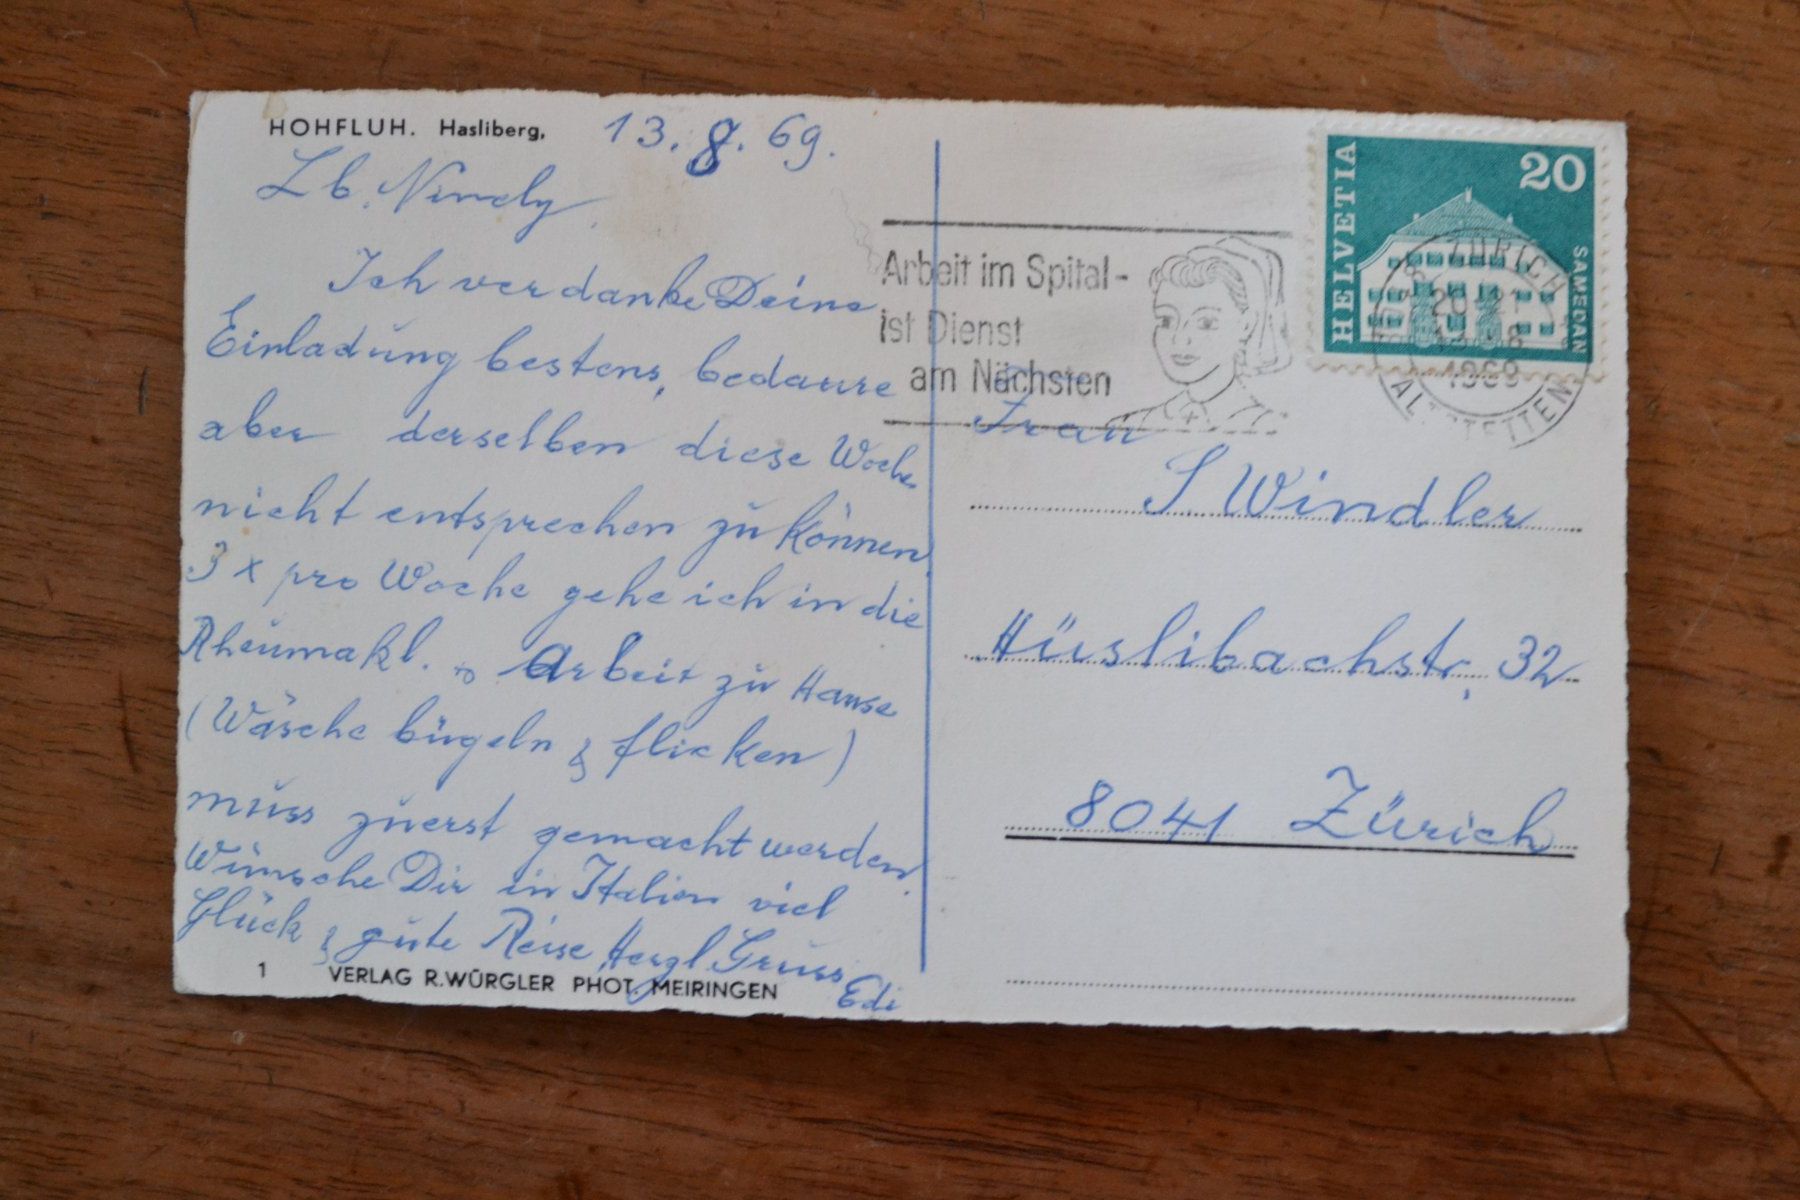 HOHFLUH. Hasliberg, 13. 8. 69.
Lb. Nindly
Ich verdanke Deine
Einladung bestens, bedaure
aber derselben diese Woche
nicht entsprechen zu können.
3 x pro Woche gehe ich in die
Rheumakl. Arbeit zu Hause
(Wäsche bügeln & flicken)
muss zuerst gemacht werden.
Wünsche Dir in Italien viel
Glück & gute Reise Herzl. Gruss
Edi
1 VERLAG R. WÜRGLER PHOT. MEIRINGEN
Arbeit im Spital-
ist Dienst
am Nächsten
HELVETIA
20
SAMEDAN
ZÜRICH
1969
ALTSTETTEN
Frau
S. Windler
Hüslibachstr. 32
8041 Zürich